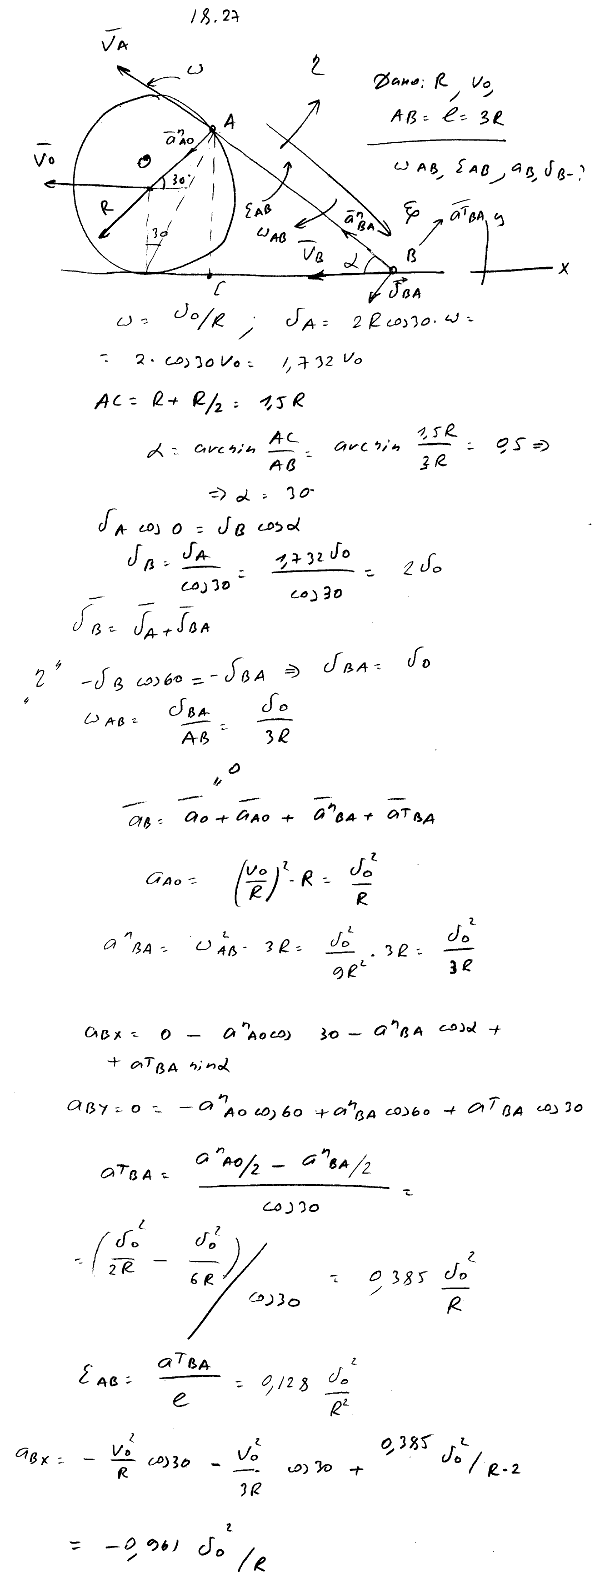 18.27
V̄A
ω
2
Дано: R, V₀,
AB = ℓ = 3R
ωAB, εAB, aB, υB - ?
A
āⁿAO
V̄₀
O
30°
R
30
εAB
ωAB
āⁿBA
āᵀBA
y
V̄B
α
B
ῡBA
C
x
ω = υ₀/R ; υA = 2R cos30·ω =
= 2·cos30 V₀ = 1,732 V₀
AC = R + R/2 = 1,5R
α = arcsin AC/AB = arcsin 1,5R/3R = 0,5 ⇒
⇒ α = 30°
υA cos 0 = υB cosα
υB = υA/cos30 = 1,732 υ₀/cos30 = 2υ₀
ῡB = ῡA + ῡBA
"2" -υB cos60 = -υBA ⇒ υBA = υ₀
ωAB = υBA/AB = υ₀/3R
" 0
āB = ā₀ + āAO + āⁿBA + āᵀBA
aAO = (V₀/R)²·R = υ₀²/R
aⁿBA = ω²AB · 3R = υ₀²/9R² · 3R = υ₀²/3R
aBX = 0 - aⁿAO cos 30 - aⁿBA cosα +
+ aᵀBA sinα
aBY = 0 = -aⁿAO cos60 + aⁿBA cos60 + aᵀBA cos30
aᵀBA = (aⁿAO/2 - aⁿBA/2)/cos30 =
= (υ₀²/2R - υ₀²/6R)/cos30 = 0,385 υ₀²/R
εAB = aᵀBA/ℓ = 0,128 υ₀²/R²
aBX = - V₀²/R cos30 - V₀²/3R cos30 + 0,385 υ₀²/R·2
= -0,961 υ₀²/R